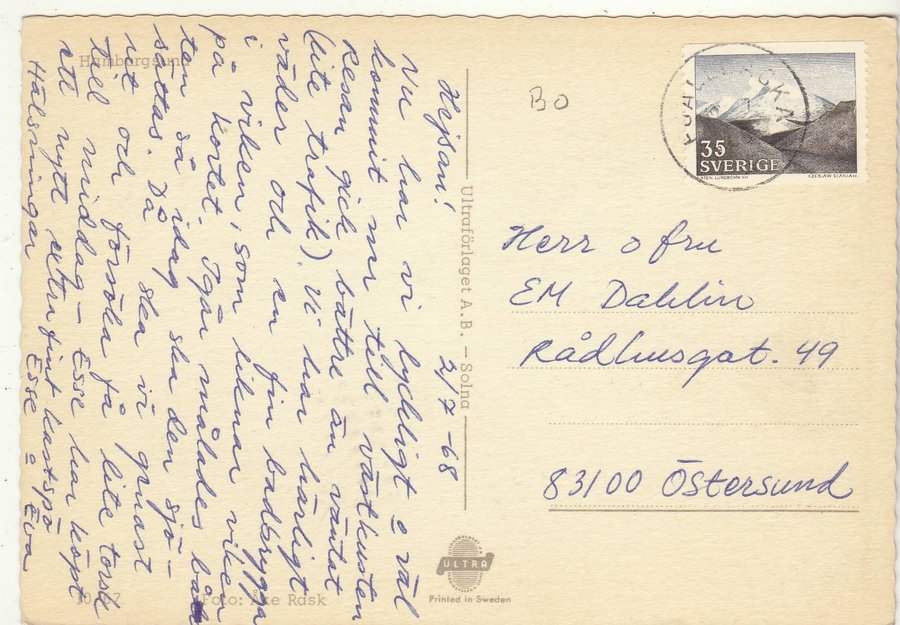 Hamburgsund
Hejsan! 2/7-68
Nu har vi lyckligt o väl
kommit ner till västkusten
Resan gick bättre än väntat
(lite trafik). Vi har härligt
väder och en fin badbrygga
i viken, som liknar viken
på kortet. Igår målades båt
ten så idag ska den sjö-
sättas. Då ska vi genast
ut och försöka få lite torsk
till middag – Esse har köpt
ett nytt extra fint kastspö
Hälsningar Esse o Eva
10 67 Foto: Åke Rask
Ultraförlaget A.B. – Solna
BO
35
SVERIGE
STEN LUNDBOHM DEL CZESLAW SLANIA SC
Herr o fru
EM Dahlin
Rådhusgat. 49
83100 Östersund
ULTRA
Printed in Sweden